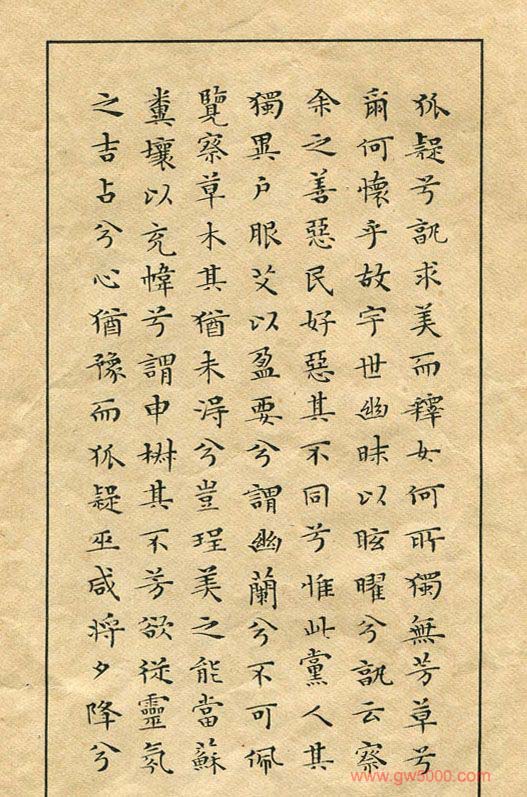 狐疑兮孰求美而釋女何所獨無芳草兮
爾何懷乎故宇世幽昧以眩曜兮孰云察
余之善惡民好惡其不同兮惟此黨人其
獨異戶服艾以盈要兮謂幽蘭兮不可佩
覽察草木其猶未得兮豈珵美之能當蘇
糞壤以充幃兮謂申椒其不芳欲從靈氛
之吉占兮心猶豫而狐疑巫咸將夕降兮
www.gw5000.com